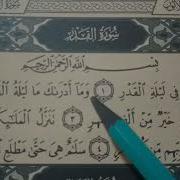 سُورَةُ الْقَدْرِ
بِسْمِ اللَّهِ الرَّحْمَٰنِ الرَّحِيمِ
فِي لَيْلَةِ الْقَدْرِ ١ وَمَا أَدْرَىٰكَ مَا لَيْلَةُ
خَيْرٌ مِّنْ ٣ تَنَزَّلُ
٤ سَلَٰمٌ هِيَ حَتَّىٰ مَطْلَعِ